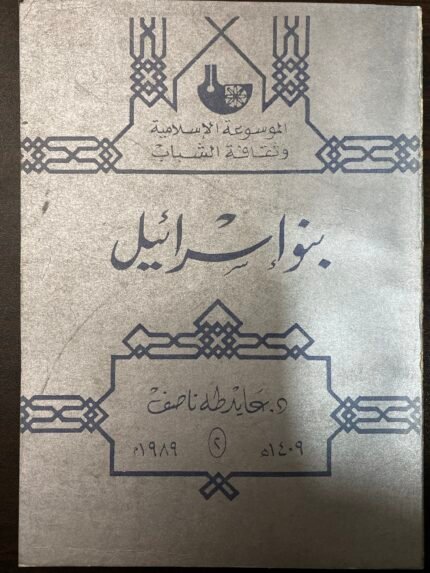 الموسوعة الإسلامية
وثقافة الشباب
بنو إسرائيل
د. عايد طه ناصف
١٤٠٩ھ ٢ ١٩٨٩م